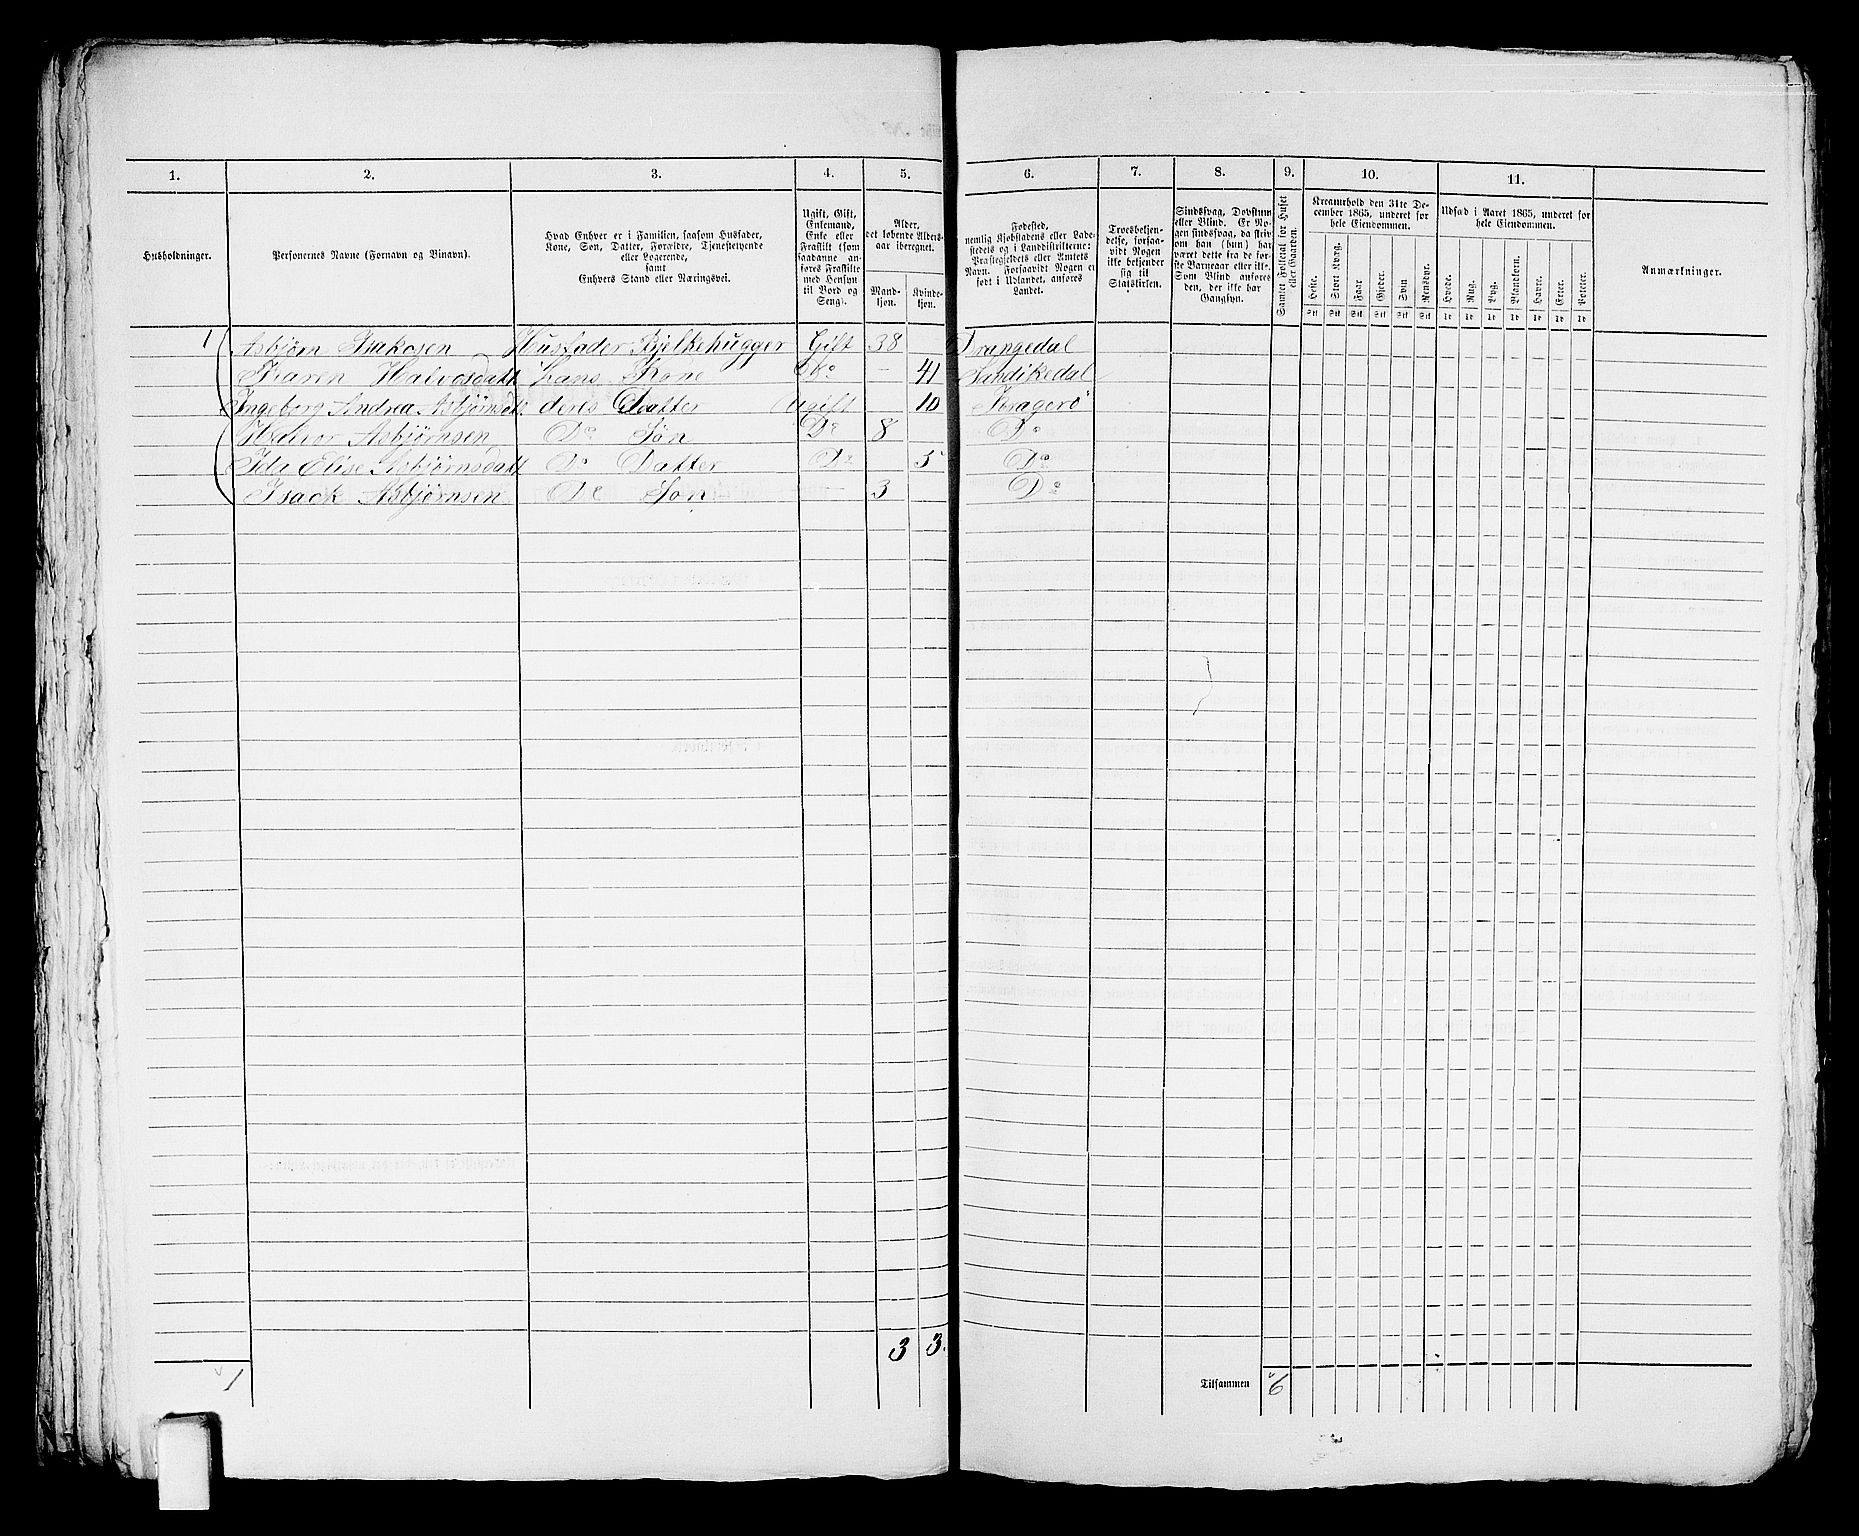 1. 2. 3. 4. 5. 6. 7. 8. 9. 10. 11.
Husholdninger.
Personernes Navne (Fornavn og Binavn).
Hvad Enhver er i Familien, saasom Husfader,
Kone, Søn, Datter, Forældre, Tjenestetyende
eller Logerende,
samt
Enhvers Stand eller Næringsvei.
Ugift, Gift,
Enkemand,
Enke eller
Fraskilt (som
saadanne an-
føres Fraskilte
med Hensyn
til Bord og
Seng).
Alder,
det løbende Alders-
aar iberegnet.
Mand-
kjøn.
Kvinde-
kjøn.
Fødested,
nemlig Kjøbstadens eller Lade-
stedets og i Landdistrikterne:
Præstegjeldets eller Amtets
Navn. Forsaavidt Nogen er
født i Udlandet, anføres
Landet.
Troesbekjen-
delse, forsaa-
vidt Nogen
ikke bekjender
sig til
Statskirken.
Sindssvag, Døvstum
eller Blind. Er No-
gen sindssvag, da skri-
ves om han (hun) har
været dette fra de før-
ste Barneaar eller ikke.
Som Blind anføres
den, der ikke har
Gangsyn.
Samlet Folketal for Huset
eller Gaarden.
Kreaturhold den 31te De-
cember 1865, underet for
hele Eiendommen.
Heste.
Stort Kvæg.
Faar
Gjeder.
Svin
Rensdyr.
Udsæd i Aaret 1865, underet for
hele Eiendommen.
Hvede.
Rug.
Byg.
Blandkorn.
Havre.
Erter.
Poteter.
Anmærkninger.
1 Asbjørn Isaksen Husfader Bjelkehugger Gift 38 Drangedal
Karen Halvosdatt hans Kone Do - 41 Sandikedal
Ingeborg Andrea Asbjørnsdt deres Datter Ugift 10 Kragerö
Halvor Asbjørnsen Do Søn Do 8 Do
Ida Elise Asbjørnsdatt Do Datter Do 5 Do
Isack Asbjørnsen Do Søn 3 Do
3 3.
1 Tilsammen 6